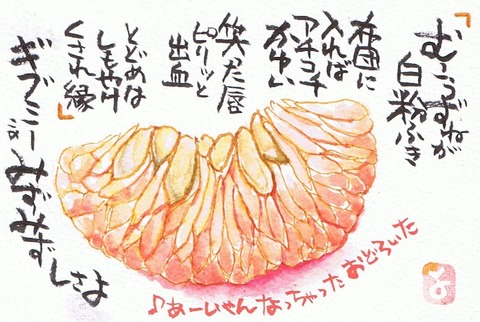 「むこうずねが
白粉ふき
布団に
入れば
アチコチ
かゆい
笑た唇
ピリッと
出血
とどめは
しもやけ
くされ縁」
ギブミーみずみずしさよ
♪あーいやんなっちゃったおどろいた
よ